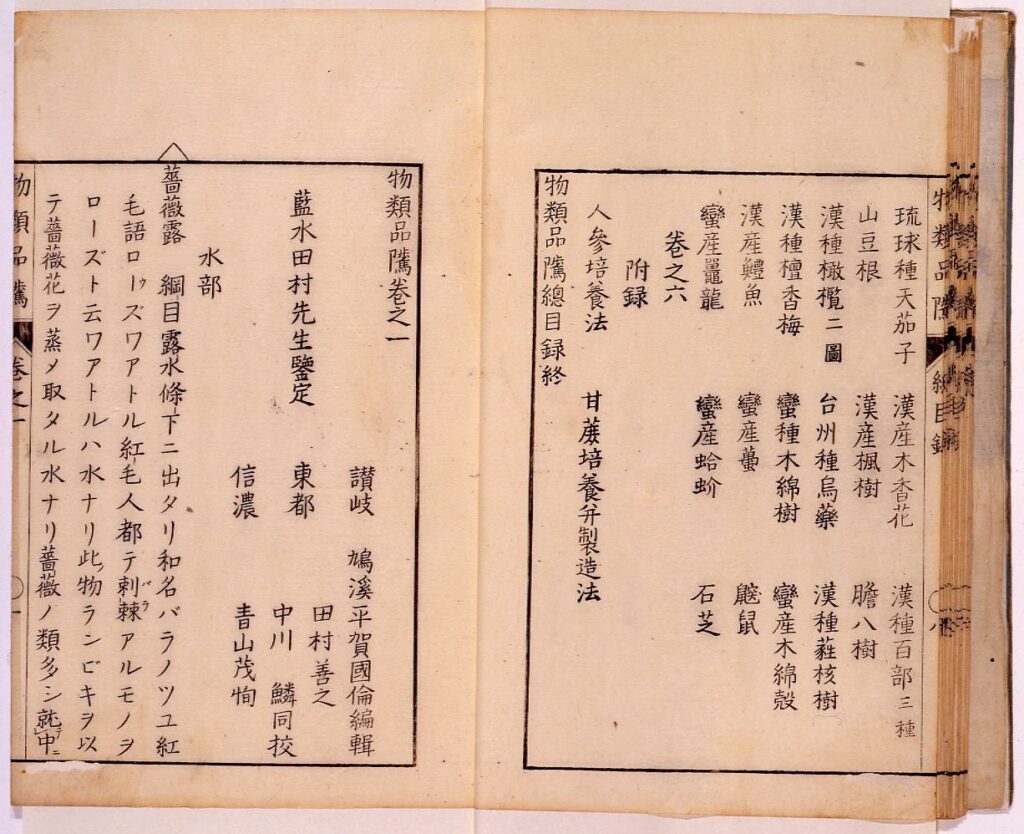 物類品隲 總目録 八
琉球種天茄子 漢産木香花 漢種百部三種
山豆根 漢産楓樹 膽八樹
漢種橄欖二圖 台州種烏藥 漢種蕤核樹
漢種檀香梅 蠻種木綿樹 蠻産木綿殼
漢産鱧魚 蠻産 鼠
蠻産鼉龍 蠻産蛤蚧 石芝
卷之六
附録
人參培養法 甘蔗培養并製造法
物類品隲總目録終
物類品隲卷之一
讃岐 鳩溪平賀國倫編輯
藍水田村先生鑒定 東都 田村善之
中川 鱗同挍
信濃 青山茂恂
水部
薔薇露 綱目露水條下ニ出タリ和名バラノツユ紅
毛語ローズワアトル紅毛人都テ刺棘バラアルモノヲ
ローズト云ワアトルハ水ナリ此物ランビキヲ以
テ薔薇花ヲ蒸メ取タル水ナリ薔薇ノ類多シ就テ中ニ
物類品隲 卷之一 一